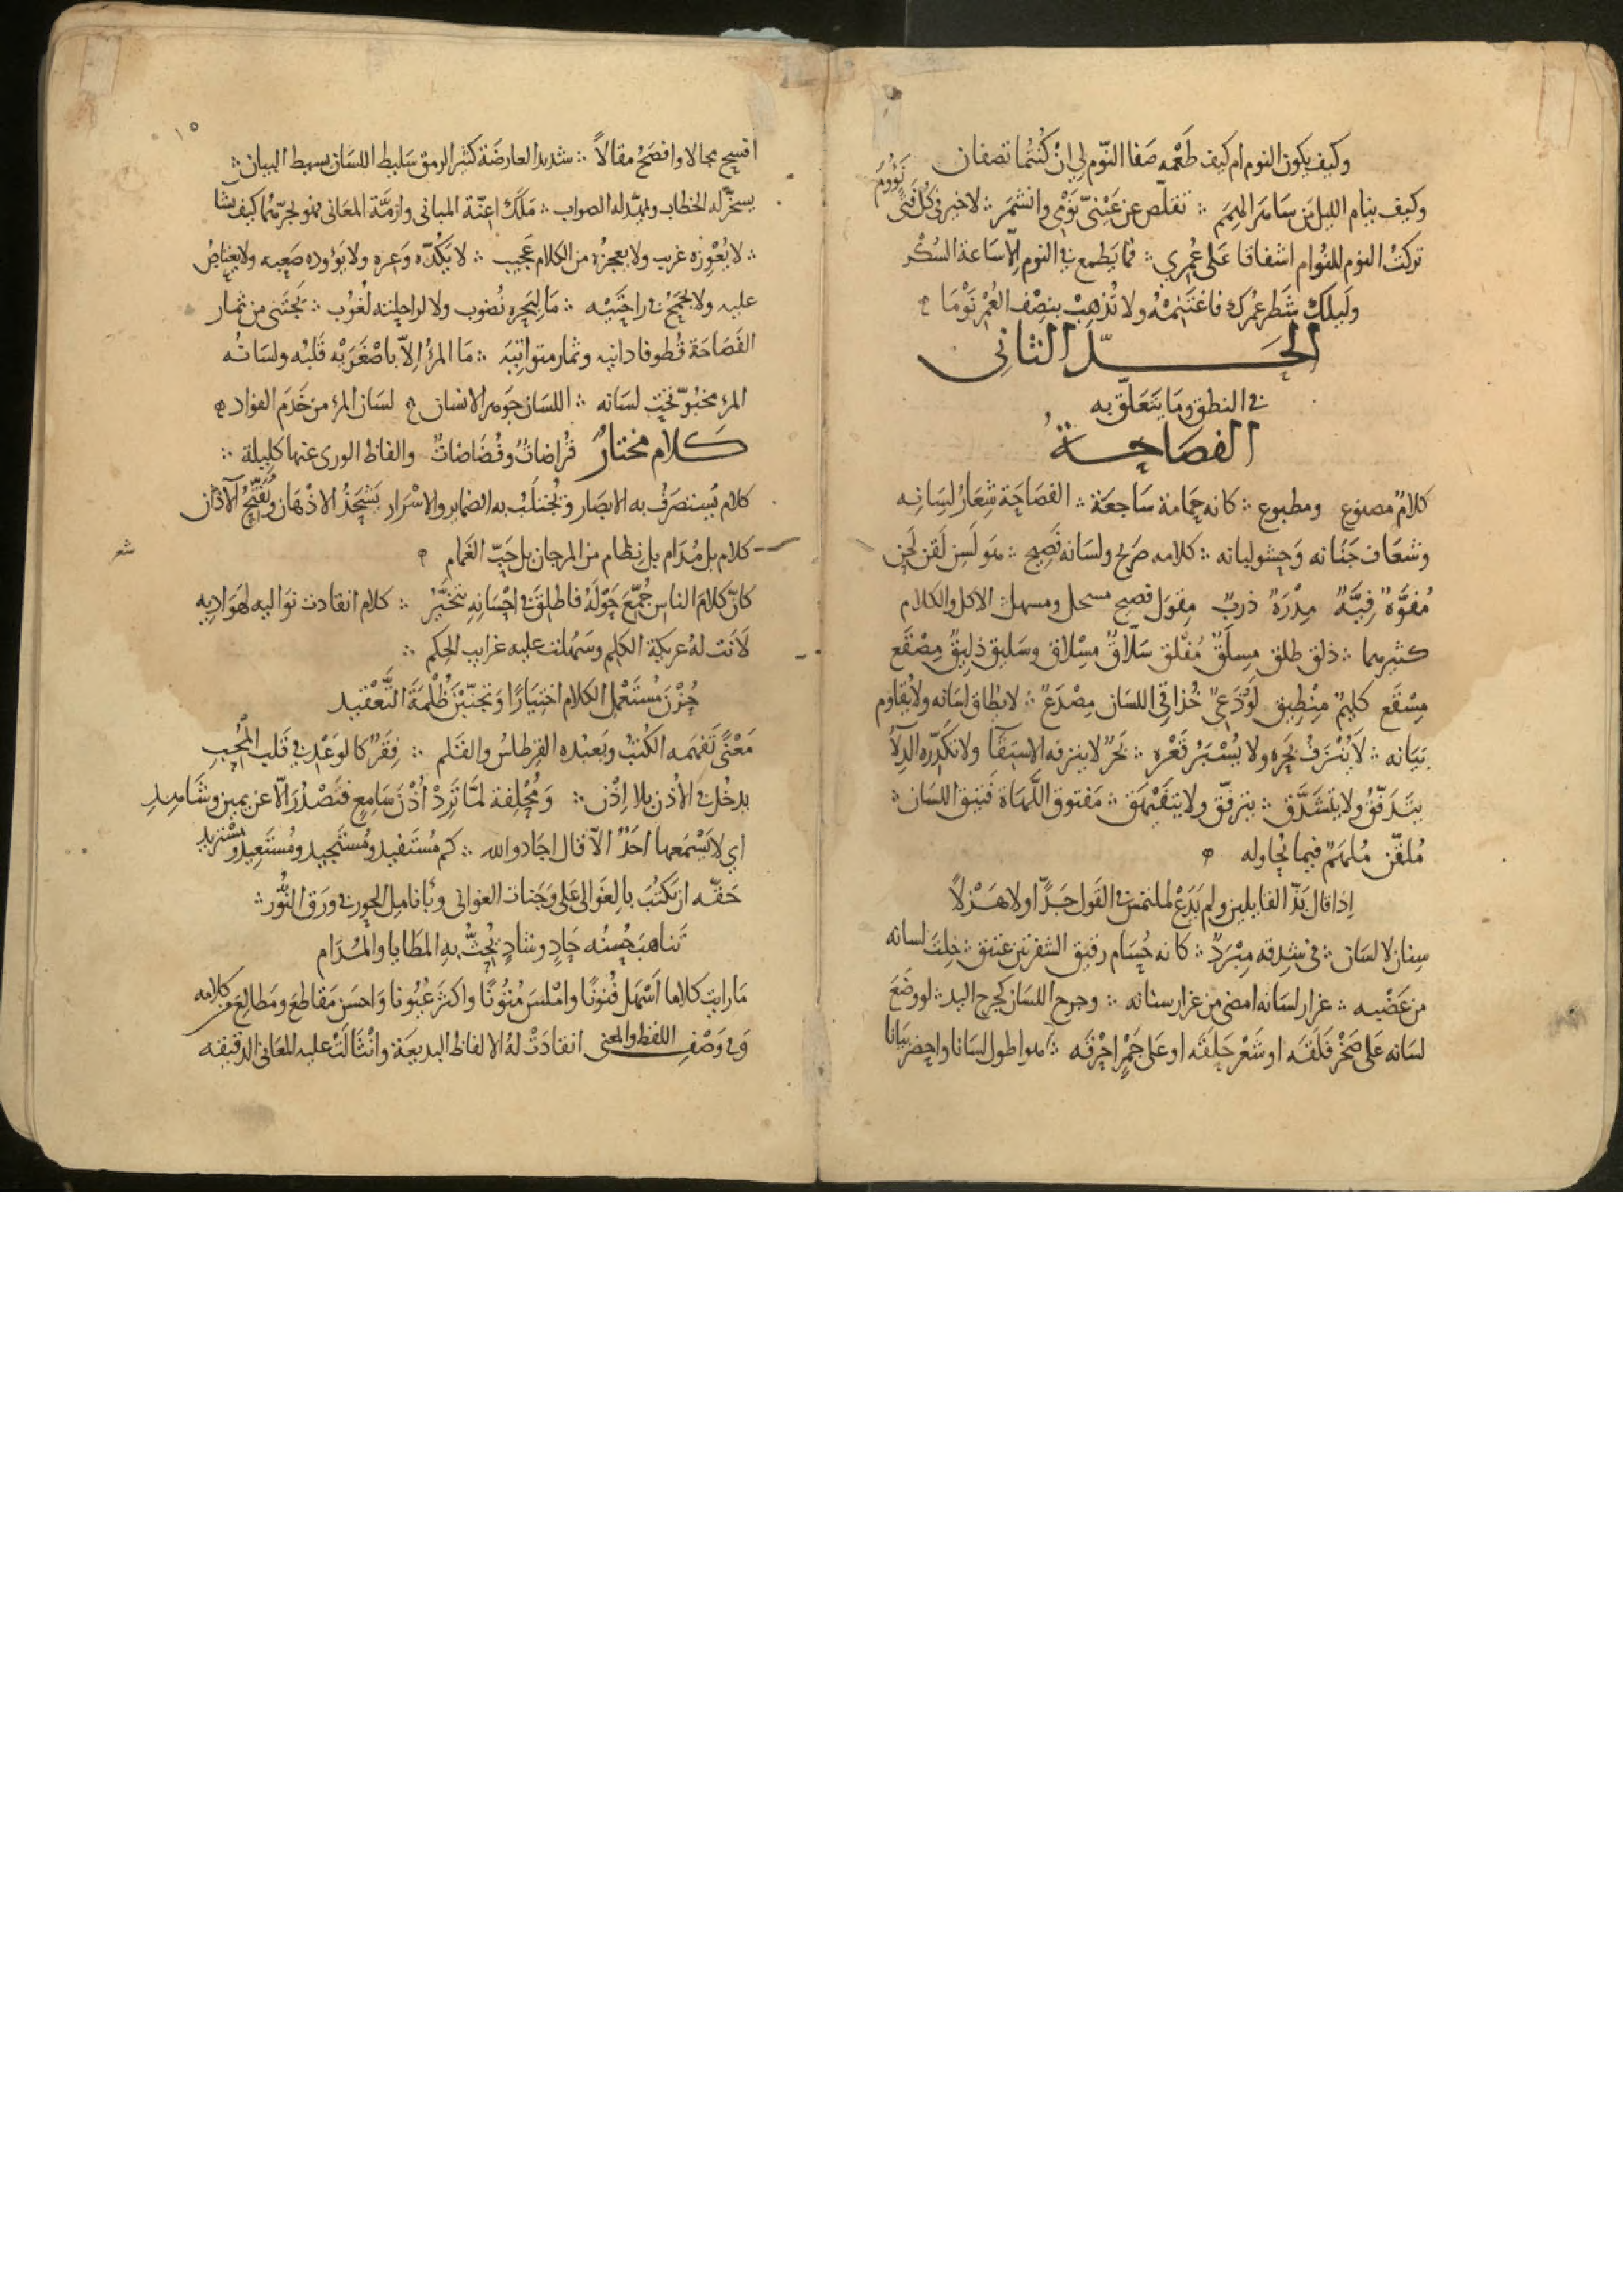 وكيف يكون النوم ام كيف طَعْمه صَفا النّوم لي انْ كُنْتُما تصفان
وكيف ينام الليل مَن سَامَرَ الهِمَم ؞ تقلّص عن عَيْنيّ نَوْمي وانشَمَر ؞ لا خير في كل فتًى نَؤُومَ
تركتُ النوم للنُوام اشفاقا عَلى عُمري ؞ فما يَطمع في النوم اِلّا سَاعة السُكْر
ولَيلكَ شَطر عُمرك فاغتَنِمْهُ ولا تُذهِبْ بنِصْف العُمْرِ نَوْمَا
الحَدّ الثاني
في النطق ومَا يتَعَلّق به
الفصَاحة
كلامٌ مصنوع ومطبوع ؞ كانه حَمَامة سَاجعَة ؞ الفصَاحَة شِعَارُ لِسَانِه
وشعَاف جَنَانه وَحشو لبانه ؞ كلامه صَريح ولسَانه فَصِيح ؞ هو لَسِن لَقِن لَحِن
مُفوَّهٌ فِيَّهٌ مِدْرَهٌ ذربٌ مِقوَل فصيح مسحل ومسهل الاكل والكلام
كثيرهما ؞ ذلق طلق مِسلَقٌ مُفْلق سَلّاقٌ مِسْلاق وسَليق ذليقٌ مِصْقَع
مِسْقَع كليمٌ مِنْطيق لَوْذَعيٌ حُذاقي اللسَان مِصْدَعٌ ؞ لا يطاق لسَانه ولا يُقاوم
بَيَانه ؞ لَا يُنْزَفُ بَحره ولا يُسْبَرُ قَعْره ؞ بَحرٌ لا ينزفه الاستِقا ولا تكَدّره الدِلاءُ
يتَدفّقُ ولا يتشَدَّق ؞ يترفّق ولا يتفَيْهَق ؞ مَفتوق اللَّهَاة فتيق اللسَان ؞
مُلقّن مُلهَمٌ فيما يُحاوله
اِذا قال بَذّ القايلين ولم يَدَعْ لملتمس في القَول جَدًّا ولا هَزْلاً
سِنان لا لسَان ؞ في شِدقه مِبْرَدٌ ؞ كانه حُسَام رقيق الشفرتين عتيق ؞ خِلتَ لسانه
من عَضْبه ؞ غرار لسَانه امضى من غرار سنانه ؞ وجرح اللسَان كجرح اليد ؞ لو وضَعَ
لسَانه عَلى صَخْر فَلَقَه او شَعْر حَلَقَه او عَلى جَمْر احْرقَه ؞ هو اطول لسَانا واحضر بَيَانا
١٥
افسح مجالا وافصَحُ مقالاً ؞ شديد العارضَة كثير الرمق سَليط اللسَان بسيط البيان ؞
يسخّر له الخطاب ويمهّد له الصواب ؞ مَلَكَ اعنّة المباني وازمَّة المعَاني فهو يجرّهما كيف شا
؞ لا يُعْوِزه غريب ولا يعجزه من الكلام عَجيب ؞ لا يَكُدّه وَعره ولا يَؤوده صَعبه ولا يعتاصُ
عليه ولا يجمَحُ في راحتَيْه ؞ مَا لبَحره نُضوب ولا لراحلته لُغُوب ؞ يَجتَنى من ثمار
الفَصَاحَة قُطوفا دانيه وثمار متواتيَه ؞ مَا المرءُ اِلّا باصْغَرَيْه قَلبُه ولسَانُه
المرء مخبُوّ تحتِ لسَانه ؞ اللسَان جَوهر الانسان لسَان المرء من خَدَم الفؤاد
كَلام مختارٌ قُراضَاتٌ وفُضَاضَاتٌ والفاظ الورى عنها كليلة ؞
كلام يُستصرَفُ به الابصَار ويُجتلَبُ به الضماير والاسْرَار يَشْحَذُ الاذْهَان ويُفتِّحُ الآذان
كلام بل مُدَام بل نِظام من المرجان بل حَبّ الغَمام
شعر
كانّ كلامَ الناس جُمّعَ حَوْلَهُ فاطلِقَ في احْسَانِهِ يتَخيَّرُ ؞ كلام انقادت تواليه لهوَاديه
لَانَت لهُ عريكة الكلِم وسَهُلت عليه غرايب الحِكَم ؞
حُزْنَ مُسْتَعْمل الكلام اختيَارًا وَتجَنّبْنَ ظُلْمَةَ التَّعْقيد
مَعْنًى تَفهَمه الكُتبُ ويَعبُده القِرطاسُ والقَلم ؞ فِقَرٌ كالوَعْد في قَلب المُحِب
يدخُل في الأُذن بلا اِذْن ؞ وَمُخْلِفة لمّا تَرِدْ اُذْنَ سَامِع فتَصْدُرَ اِلّا عن يمين وشَاهِدِ
اي لا يَسْمَعها احَدٌ الّا قال اجَاد والله ؞ كم مُستَفيد ومُستَجيد ومُستَعِيد ومُسْتزيد
حَقّه ان يكتُبَ بالغَوالي عَلى وَجَنات الغواني وبأنامِل الحور في وَرَق النُّور ؞
تَناهبَ حُسنُه حَادٍ وشَادٍ يُحَثُّ بهِ المَطَايا والمُدَام
مَا رايت كلاما اَسْهَل فُنونًا وامْلسَ مُتُونًا واكثرَ عُيُونا وَاحسَن مَقاطعَ ومَطالِعَ من كلامه
وَفي وَصْفِ اللفظ والمعنى انقادَتْ لهُ الالفاظ البديعَة وانْثَالَتْ عليه المعَاني الدقيقه